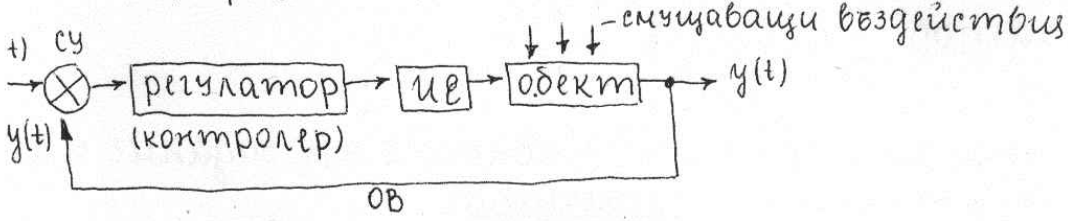 смущаващи въздействия
t) СУ
регулатор ИЕ обект y(t)
y(t) (контролер)
ОВ